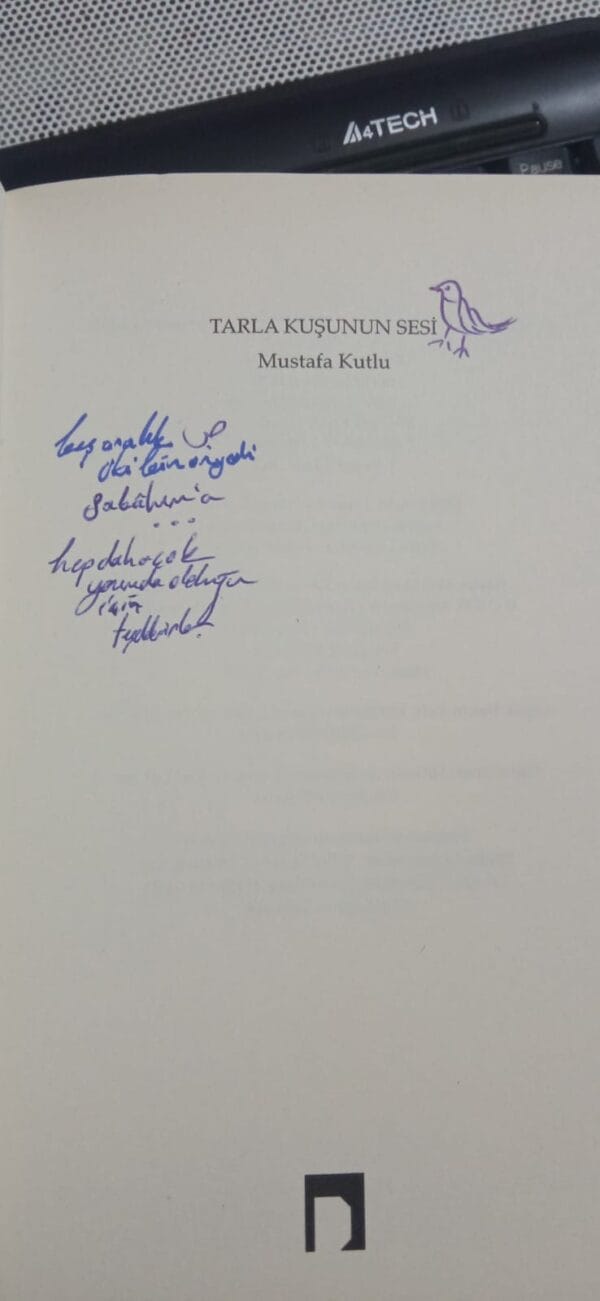 A4TECH
Pause
TARLA KUŞUNUN SESİ
Mustafa Kutlu
beş aralık ص
iki bin on yedi
Sabâhım'a
...
hep daha çok
yanımda olduğun
için
teşekkürler